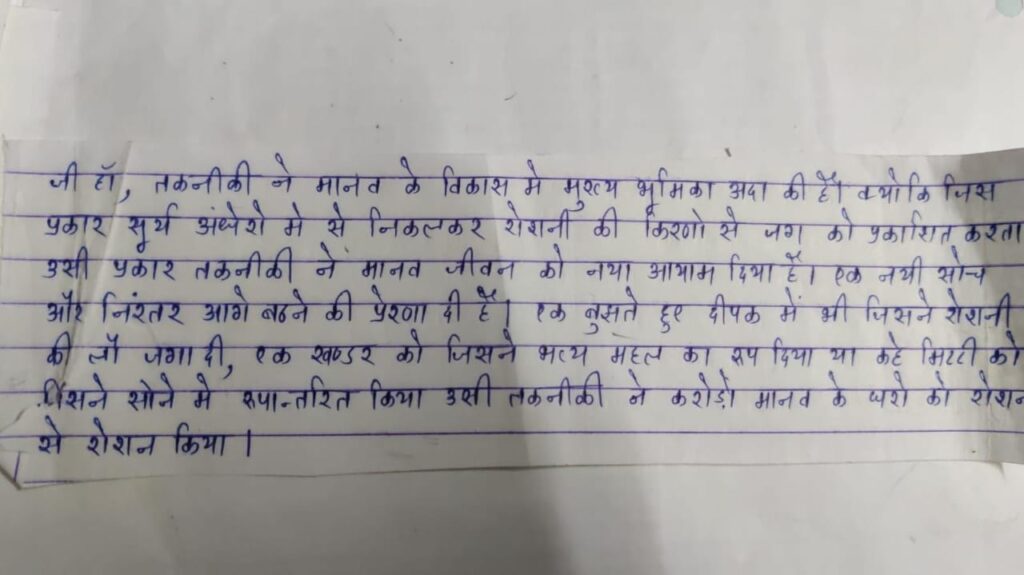 जी हाँ, तकनीकी ने मानव के विकास मे मुख्य भूमिका अदा की है। क्योकि जिस
प्रकार सूर्य अंधेरो मे से निकलकर रोशनी की किरणो से जग को प्रकाशित करता
उसी प्रकार तकनीकी ने मानव जीवन को नया आयाम दिया है। एक नयी सोच
और निरंतर आगे बढने की प्रेरणा दी है। एक बुझते हुए दीपक में भी जिसने रोशनी
की लौ जगा दी, एक खण्डर को जिसने भव्य महल का रूप दिया या कहे मिटटी को
जिसने सोने मे रूपान्तरित किया उसी तकनीकी ने करोड़ो मानव के घरो को
से रोशन किया।